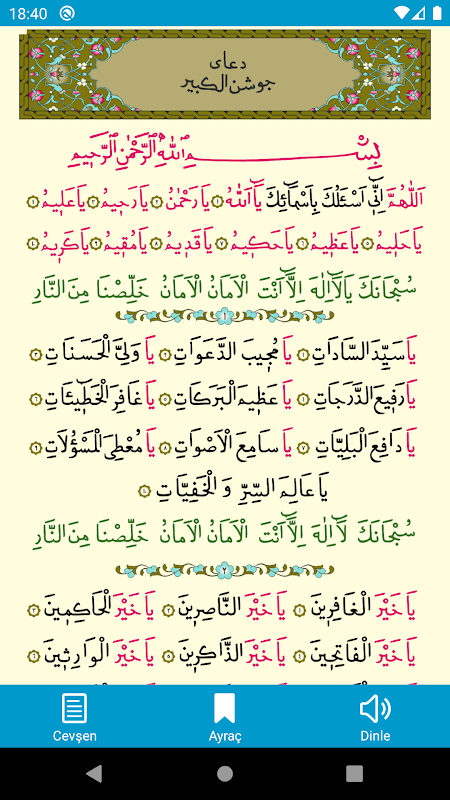 18:40
دعاى
جوشن الكبير
بِسْمِ اللّٰهِ الرَّحْمٰنِ الرَّحٖيمِ
اَللّٰهُمَّ اِنّٖى اَسْئَلُكَ بِاَسْمَائِكَ يَا اَللّٰهُ ١ يَا رَحْمٰنُ ٢ يَا رَحٖيمُ ٣ يَا عَلٖيمُ ٤
يَا حَلٖيمُ ٥ يَا عَظٖيمُ ٦ يَا حَكٖيمُ ٧ يَا قَدٖيمُ ٨ يَا مُقٖيمُ ٩ يَا كَرٖيمُ ١٠
سُبْحَانَكَ يَا لَا اِلٰهَ اِلَّا اَنْتَ الْاَمَانُ الْاَمَانُ خَلِّصْنَا مِنَ النَّارِ
١
يَا سَيِّدَ السَّادَاتِ ١ يَا مُجٖيبَ الدَّعَوَاتِ ٢ يَا وَلِىَّ الْحَسَنَاتِ ٣
يَا رَفٖيعَ الدَّرَجَاتِ ٤ يَا عَظٖيمَ الْبَرَكَاتِ ٥ يَا غَافِرَ الْخَطٖيئَاتِ ٦
يَا دَافِعَ الْبَلِيَّاتِ ٧ يَا سَامِعَ الْاَصْوَاتِ ٨ يَا مُعْطِىَ الْمَسْؤُلَاتِ ٩
يَا عَالِمَ السِّرِّ وَ الْخَفِيَّاتِ ١٠
سُبْحَانَكَ لَا اِلٰهَ اِلَّا اَنْتَ الْاَمَانُ الْاَمَانُ خَلِّصْنَا مِنَ النَّارِ
٢
يَا خَيْرَ الْغَافِرٖينَ ١ يَا خَيْرَ النَّاصِرٖينَ ٢ يَا خَيْرَ الْحَاكِمٖينَ ٣
يَا خَيْرَ الْفَاتِحٖينَ ٤ يَا خَيْرَ الذَّاكِرٖينَ ٥ يَا خَيْرَ الْوَارِثٖينَ ٦
Cevşen
Ayraç
Dinle